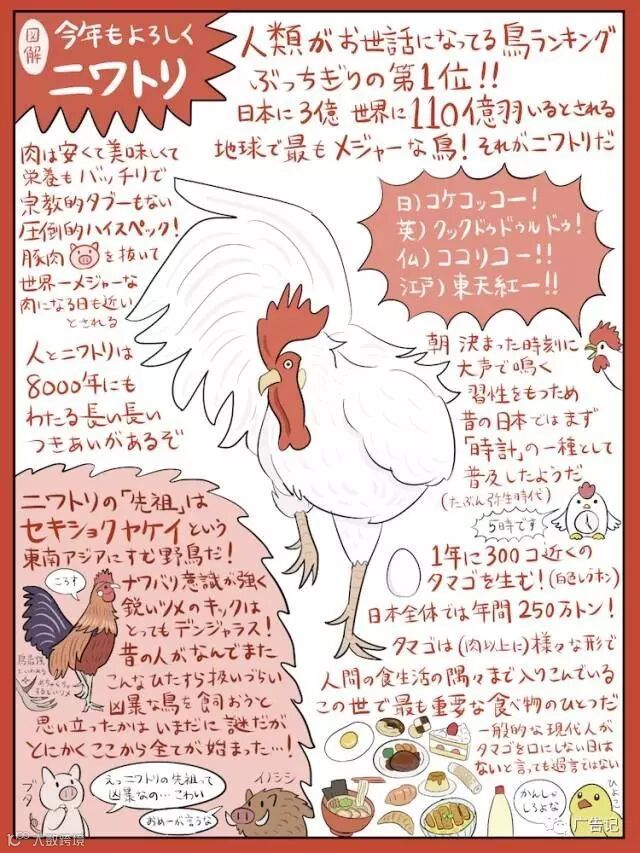 図解
今年もよろしく
ニワトリ
人類がお世話になってる鳥ランキング
ぶっちぎりの第1位!!
日本に3億 世界に110億羽いるとされる
地球で最もメジャーな鳥!それがニワトリだ
肉は安くて美味しくて
栄養もバッチリで
宗教的タブーもない
圧倒的ハイスペック!
豚肉を抜いて
世界一メジャーな
肉になる日も近い
とされる
日)コケコッコー!
英)クックドゥドゥルドゥ!
仏)ココリコー!!
江戸)東天紅ー!!
人とニワトリは
8000年にも
わたる長い長い
つきあいがあるぞ
朝 決まった時刻に
大声で鳴く
習性をもつため
昔の日本ではまず
「時計」の一種として
普及したようだ
(たぶん弥生時代)
5時です
ニワトリの「先祖」は
セキショクヤケイという
東南アジアにすむ野鳥だ!
ころす
ナワバリ意識が強く
鋭いツメのキックは
とってもデンジャラス!
鳥最強
といわれる
めちゃくちゃ
鋭いツメ
昔の人がなんでまた
こんなひたすら扱いづらい
凶暴な鳥を飼おうと
思い立ったかはいまだに謎だが
とにかくここから全てが始まった…!
1年に300コ近くの
タマゴを生む!(白色レグホン)
日本全体では年間250万トン!
タマゴは(肉以上に)様々な形で
人間の食生活の隅々まで入りこんでいる
この世で最も重要な食べ物のひとつだ
一般的な現代人が
タマゴを口にしない日は
ないと言っても過言ではない
ブタ
えっニワトリの先祖って
凶暴なの…こわい
イノシシ
おめーが言うな
かんしゃ
しろよな
ひよこ
10100 大数跨境
广告记